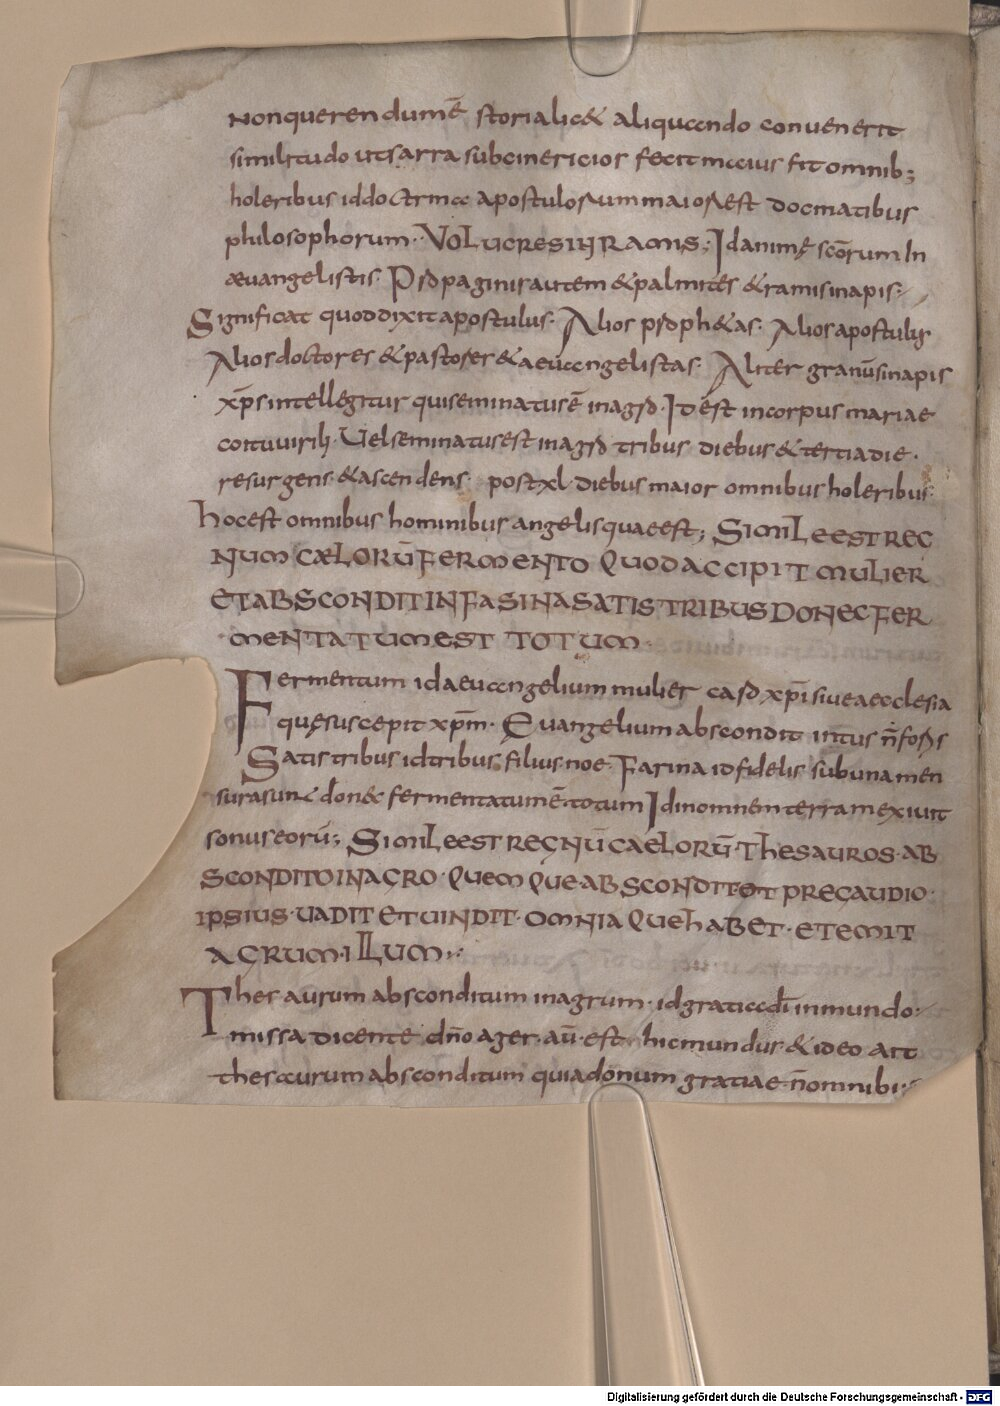 non querendum ē storialic& aliquando conuenerit
similitudo ut sarra subcinericior fecit maius fit omnib;
holeribus id doctrina apostulorum maior est docmatibus
philosophorum· VOLUCRES IN RAMIS; Id animę scōrum In
æuangelistis· Pro paginis autem & palmites & rami sinapis·
Significat quod dixit apostulus· Alios prophetas· Alios apostulus
Alios doctores & pastores & aeuangelistas· Aliter granū sinapis
xp̄s intellegitur qui seminatus ē in agro· Id est in corpus mariae
coitu uirili· Uel seminatus est in agro tribus diebus & tertia die·
resurgens· & ascendens· post xl· diebus maior omnibus holeribus·
hoc est omnibus hominibus angelis quae est; SIMILE EST REG
NUM CÆLORŪ FERMENTO QUOD ACCIPIT MULIER
ET ABSCONDIT IN FASINA SATIS TRIBUS DONEC FER
MENTATUM EST TOTUM·
Fermentum id aeuangelium mulier caro xp̄i siue aecclesia
quę suscepit xp̄m· Euangelium abscondit intus n̄ foris
Satis tribus id tribus filius noe· Farina id fidelis sub una men
sura sunt donec fermentatum ē totum Id in omnem terram exiuit
sonus eorū; SIMILE EST REGNŪ CAELORŪ THESAUROS· AB
SCONDITO IN AGRO· QUEM QUE· ABSCONDIT· ET PRE GAUDIO·
IPSIUS· UADIT ET UINDIT· OMNIA QUE HABET· ET EMIT
AGRUM· ILLUM·
Thesaurum absconditum in agrum· id gratia dī in mundo·
missa dicente dn̄o ager· aū· est· hic mundus & ideo ait
thesaurum absconditum quia donum gratiae n̄ omnibus